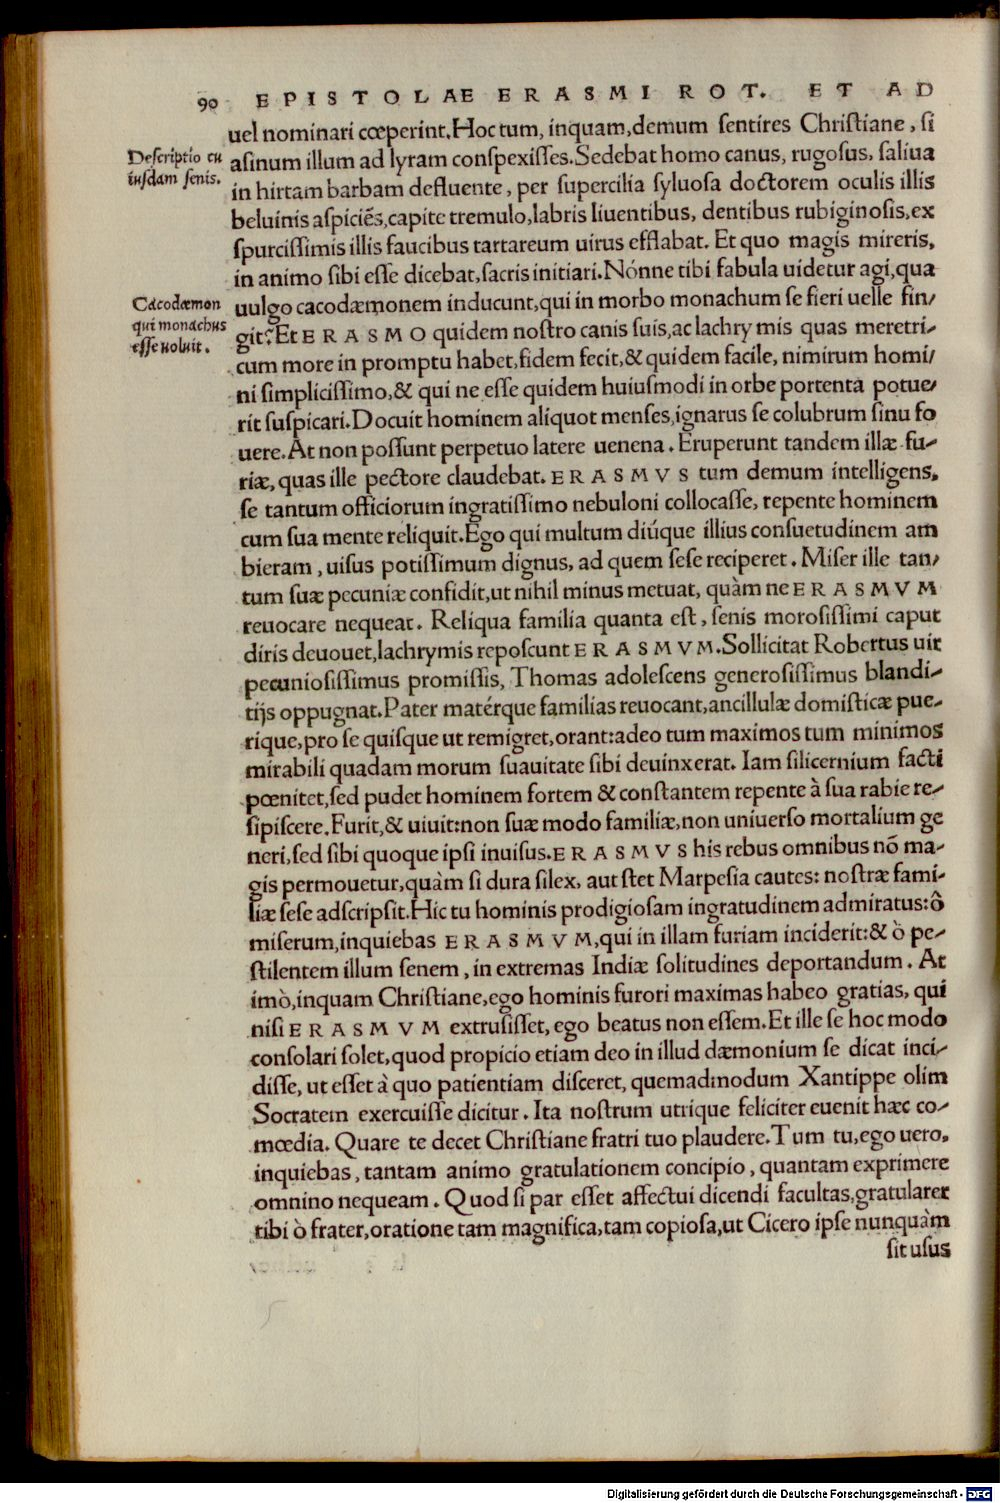 90 EPISTOLAE ERASMI ROT. ET AD
uel nominari cœperint. Hoc tum, inquam, demum sentires Christiane, si
Descriptio cu
iusdam senis.
asinum illum ad lyram conspexisses. Sedebat homo canus, rugosus, saliua
in hirtam barbam defluente, per supercilia syluosa doctorem oculis illis
beluinis aspiciẽs, capite tremulo, labris liuentibus, dentibus rubiginosis, ex
spurcissimis illis faucibus tartareum uirus efflabat. Et quo magis mireris,
in animo sibi esse dicebat, sacris initiari. Nónne tibi fabula uidetur agi, qua
Cacodæmon
qui monachus
esse uoluit.
uulgo cacodæmonem inducunt, qui in morbo monachum se fieri uelle fin/
git? Et ERASMO quidem nostro canis suis, ac lachrymis quas meretri-
cum more in promptu habet, fidem fecit, & quidem facile, nimirum homi/
ni simplicissimo, & qui ne esse quidem huiusmodi in orbe portenta potue/
rit suspicari. Docuit hominem aliquot menses, ignarus se colubrum sinu fo
uere. At non possunt perpetuo latere uenena. Eruperunt tandem illæ fu-
riæ, quas ille pectore claudebat. ERASMVS tum demum intelligens,
se tantum officiorum ingratissimo nebuloni collocasse, repente hominem
cum sua mente reliquit. Ego qui multum diúque illius consuetudinem am
bieram, uisus potissimum dignus, ad quem sese reciperet. Miser ille tan/
tum suæ pecuniæ confidit, ut nihil minus metuat, quàm ne ERASMVM
reuocare nequeat. Reliqua familia quanta est, senis morosissimi caput
diris deuouet, lachrymis reposcunt ERASMVM. Sollicitat Robertus uir
pecuniosissimus promissis, Thomas adolescens generosissimus blandi-
tijs oppugnat. Pater matérque familias reuocant, ancillulæ domisticæ pue-
rique, pro se quisque ut remigret, orant: adeo tum maximos tum minimos
mirabili quadam morum suauitate sibi deuinxerat. Iam silicernium facti
pœnitet, sed pudet hominem fortem & constantem repente à sua rabie re-
sipiscere. Furit, & uiuit: non suæ modo familiæ, non uniuerso mortalium ge
neri, sed sibi quoque ipsi inuisus. ERASMVS his rebus omnibus nõ ma-
gis permouetur, quàm si dura silex, aut stet Marpesia cautes: nostræ fami-
liæ sese adscripsit. Hic tu hominis prodigiosam ingratudinem admiratus: ô
miserum, inquiebas ERASMVM, qui in illam furiam inciderit: & ò pe-
stilentem illum senem, in extremas Indiæ solitudines deportandum. At
imò, inquam Christiane, ego hominis furori maximas habeo gratias, qui
nisi ERASMVM extrusisset, ego beatus non essem. Et ille se hoc modo
consolari solet, quod propicio etiam deo in illud dæmonium se dicat inci-
disse, ut esset à quo patientiam disceret, quemadmodum Xantippe olim
Socratem exercuisse dicitur. Ita nostrum utrique feliciter euenit hæc co-
mœdia. Quare te decet Christiane fratri tuo plaudere. Tum tu, ego uero,
inquiebas, tantam animo gratulationem concipio, quantam exprimere
omnino nequeam. Quod si par esset affectui dicendi facultas, gratularer
tibi ò frater, oratione tam magnifica, tam copiosa, ut Cicero ipse nunquàm
sit usus
Digitalisierung gefördert durch die Deutsche Forschungsgemeinschaft - DFG